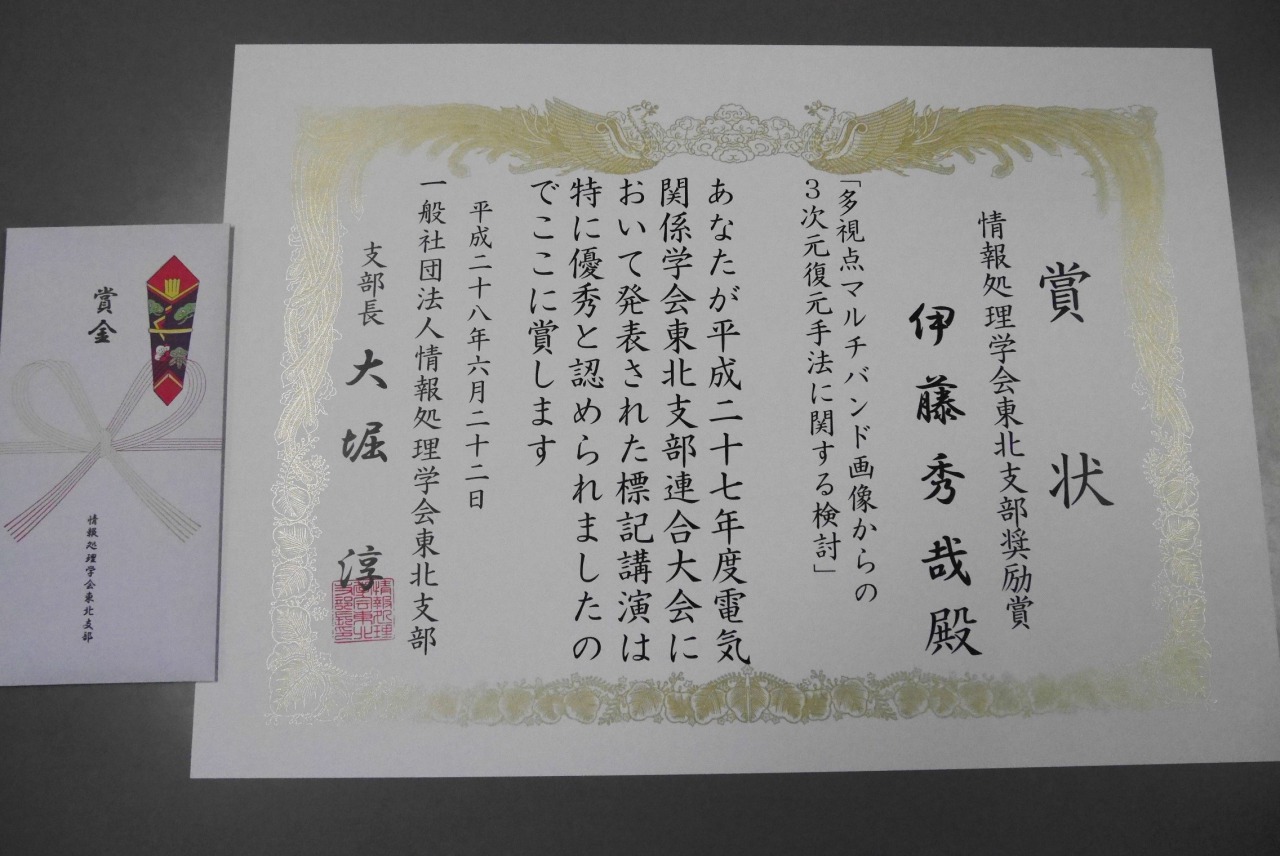 賞状
情報処理学会東北支部奨励賞
伊藤秀哉殿
「多視点マルチバンド画像からの
3次元復元手法に関する検討」
あなたが平成二十七年度電気
関係学会東北支部連合大会に
おいて発表された標記講演は
特に優秀と認められましたの
でここに賞します
平成二十八年六月二十二日
一般社団法人情報処理学会東北支部
支部長 大堀淳
情報処理
学会東北
支部長印
賞金
情報処理学会東北支部